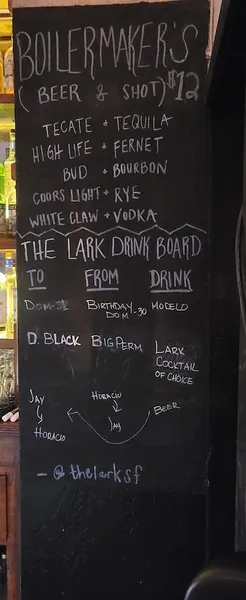 BOILERMAKER'S
(BEER & SHOT) $12
TECATE + TEQUILA
HIGH LIFE + FERNET
BUD + BOURBON
COORS LIGHT + RYE
WHITE CLAW + VODKA
THE LARK DRINK BOARD
TO FROM DRINK
DOM-31 BIRTHDAY DOM-30 MODELO
D. BLACK BIG PERM LARK COCKTAIL OF CHOICE
JAY HORACIO BEER
HORACIO JAY
- @thelarksf